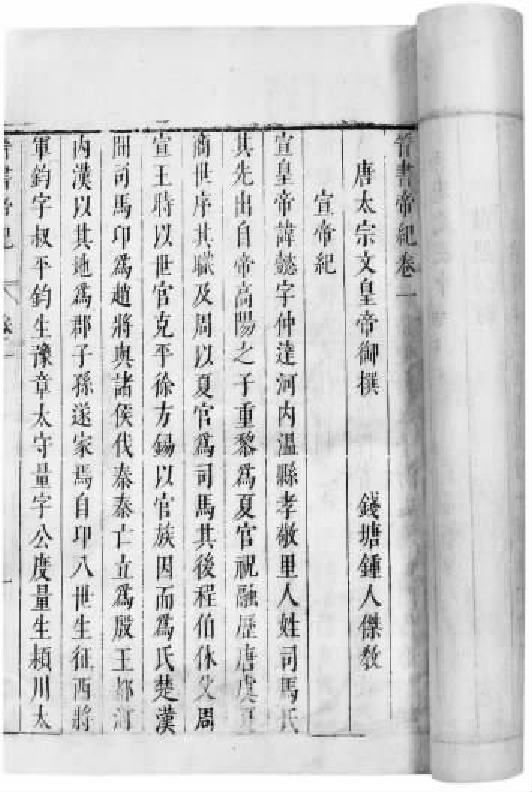 晉書帝紀卷一
唐太宗文皇帝御撰 錢塘鍾人傑敎
宣帝紀
宣皇帝諱懿字仲達河内温縣孝敬里人姓司馬氏
其先出自帝高陽之子重黎爲夏官祝融歷唐虞夏
商世序其職及周以夏官爲司馬其後程伯休父周
宣王時以世官克平徐方錫以官族因而爲氏楚漢
間司馬卭爲趙將與諸侯伐秦秦亡立爲殷王都河
内漢以其地爲郡子孫遂家焉自卭八世生征西將
軍鈞字叔平鈞生豫章太守量字公度量生潁川太
晉書帝紀 卷一 一